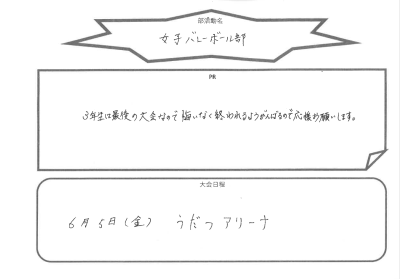 部活動名
女子バレーボール部
PR
3年生は最後の大会なので悔いなく終われるようがんばるので応援お願いします。
大会日程
6月5日(金) うだつアリーナ